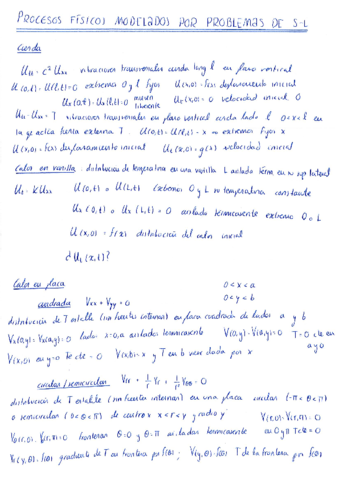 PROCESOS FÍSICOS MODELADOS POR PROBLEMAS DE S-L
Cuerda
Utt = c² Uxx vibraciones transversales cuerda long l en plano vertical
U(0,t) = U(l,t) = 0 extremos 0 y l fijos U(x,0) = f(x) desplazamiento inicial
Ux(0,t) = Ux(l,t) = 0 mueven libremente Ut(x,0) = 0 velocidad inicial 0
Utt - Uxx = T vibraciones transversales en plano vertical cuerda lado l 0<x<l en
la que actúa fuerza externa T. U(0,t) = U(l,t) = x extremos fijos x
U(x,0) = f(x) desplazamiento inicial Ut(x,0) = g(x) velocidad inicial
Calor en varilla: distribución de temperatura en una varilla L aislada term en su sup lateral
Ut = K Uxx U(0,t) = U(L,t) extremos 0 y L temperatura constante
Ux(0,t) = Ux(L,t) = 0 aislado termicamente extremo 0 o L
U(x,0) = f(x) distribución del calor inicial
¿U(x,t)?
Calor en placa 0<x<a
cuadrada Vxx + Vyy = 0 0<y<b
distribución de T estable (no fuentes internas) en placa cuadrada de lados a y b
Vx(0,y) = Vx(a,y) = 0 lados x=0,a aislados termicamente V(0,y) = V(a,y) = 0 T=0 cte en
V(x,0) en y=0 Te cte = 0 V(x,b) = x T en b viene dada por x
circular/semicircular Vrr + 1/r Vr + 1/r² Vθθ = 0
distribución de T estable (no fuentes internas) en una placa circular (-π<θ<π)
o semicircular (0<θ<π) de centro x<r<y radio y V(r,0) = V(r,π) = 0
Vθ(r,0) = Vθ(r,π) = 0 fronteras θ=0 y θ=π aisladas termicamente en 0 y π T cte = 0
Vr(y,θ) = f(θ) gradiente de T en frontera por f(θ); V(y,θ) = f(θ) T de la frontera por f(θ)